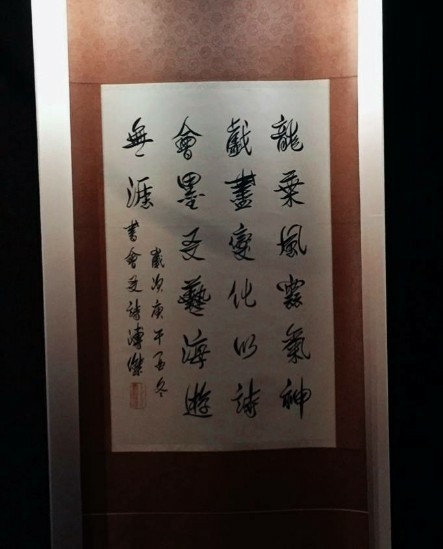 龍乘風雲氣神
戲盡變化以詩
會墨友藝海遊
無涯
歲次庚午孟冬
書會友詩溥傑